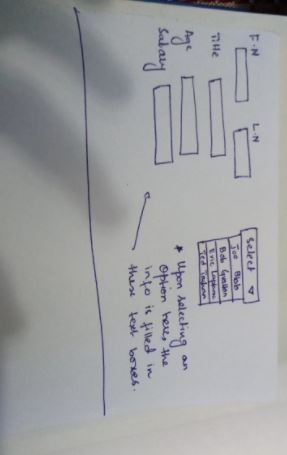 F.N L.N
Title
Age
Salary
Select
Joe Blob
Bob
Eric
Ted
* Upon selecting an
option here, the
info is filled in
these text boxes.